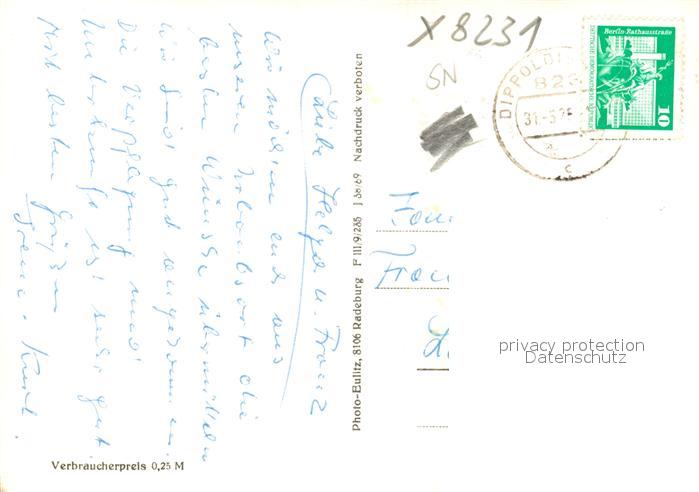 X 8231
SN
Berlin-Rathausstraße
DEUTSCHE DEMOKRATISCHE REPUBLIK
10
DIPPOLDIS
823
31.-5.75
c
Liebe Helga u. Franz
Wir möchten euch aus
unseren Urlaubsort die
besten Wünsche übermitteln
Wir sind gut angekommen
Die Verpflegung und
Unterkunft ist sehr gut.
Mit besten Grüßen
Irene
Photo-Eulitz, 8106 Radeburg F III/9/285 J 38/69 Nachdruck verboten
Fam
Fran
privacy protection
Datenschutz
Verbraucherpreis 0,25 M